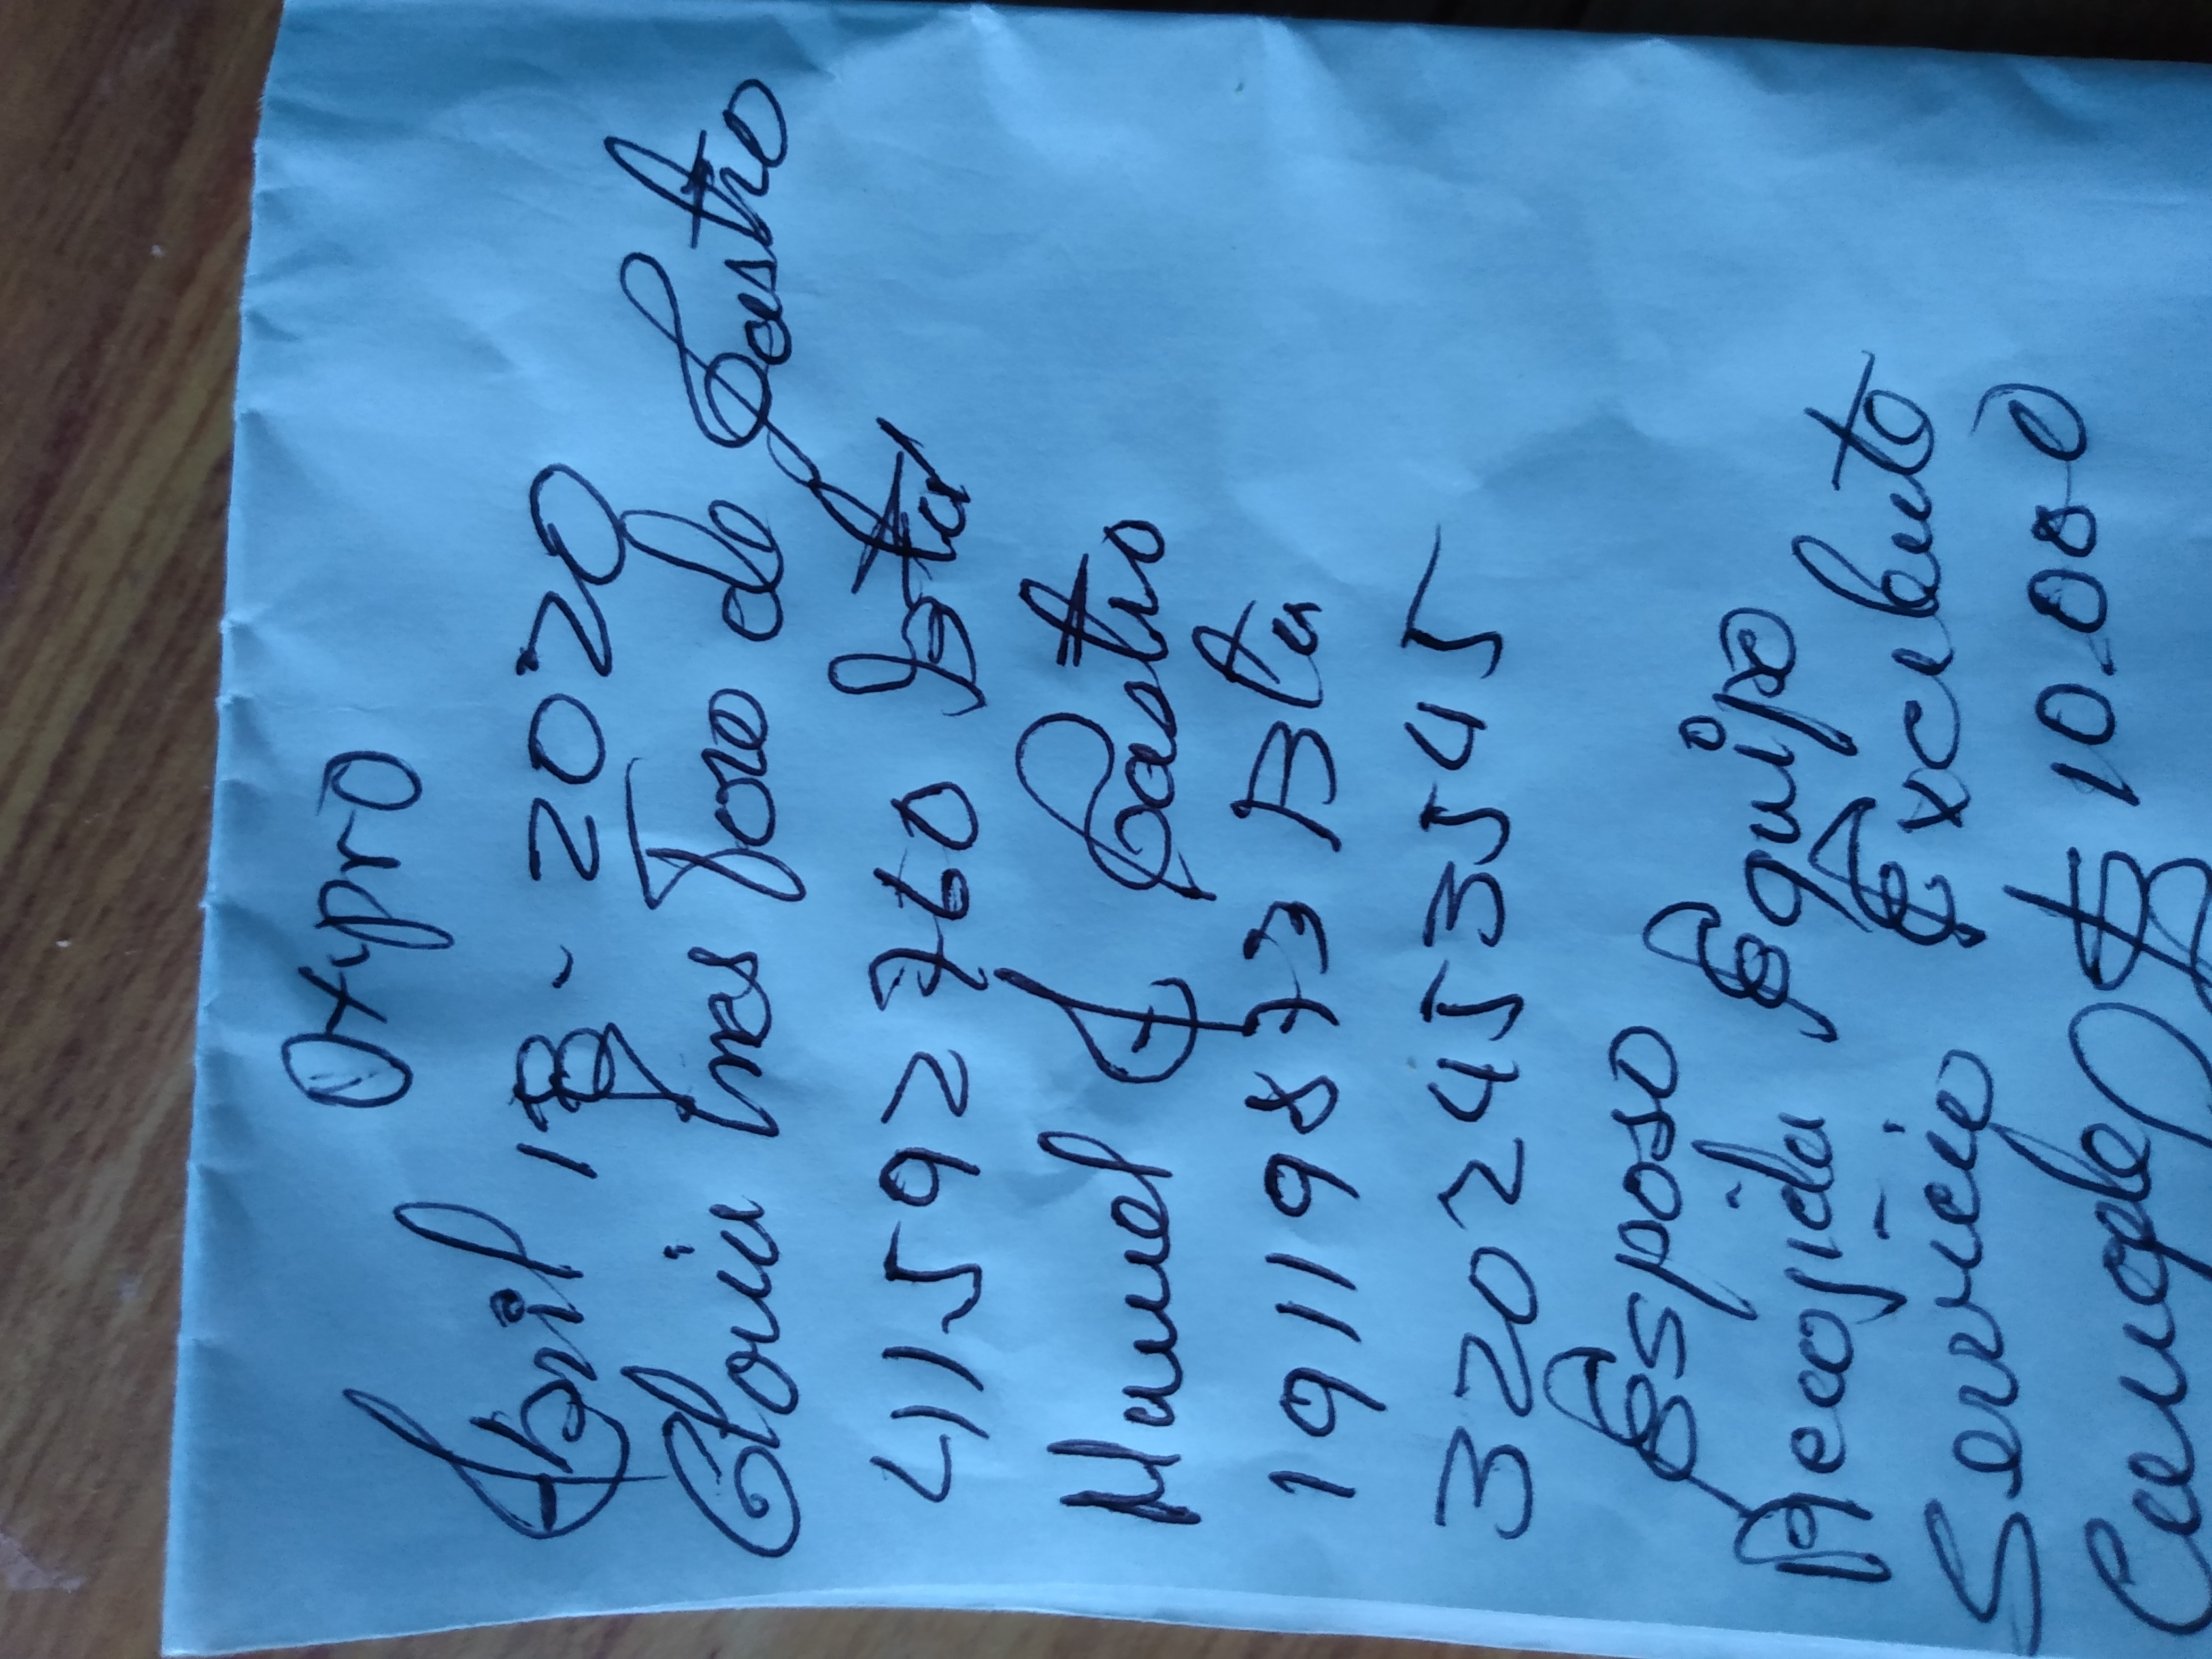 Oxipro
Abril 18 - 2020
Gloria Ines Toro de Castro
41592760 Bta
Manuel A Castro
19119873 Bta
3202453545
Esposo
Recogida Equipo
Servicio - Excelente
Cancele $ 10.000